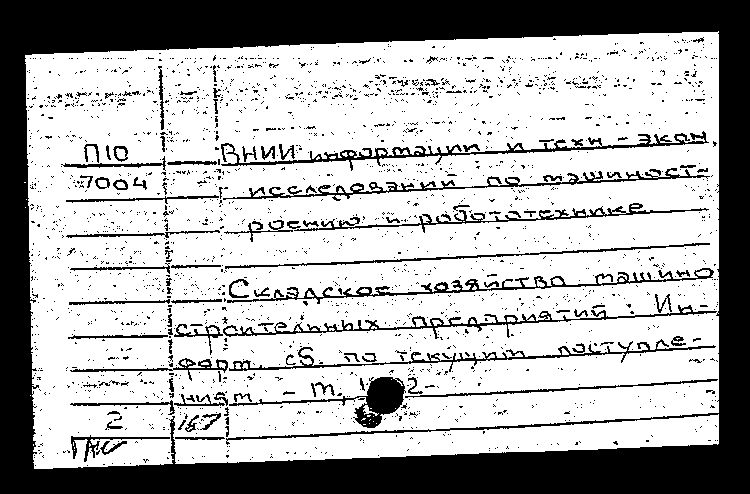 П10 ВНИИ информации и техн-экон.
7004 исследований по машиност-
роению и робототехнике.
Складское хозяйство машино
строительных предприятий: Ин-
форм. сб. по текущим поступле-
ниям. - М.,
2 187